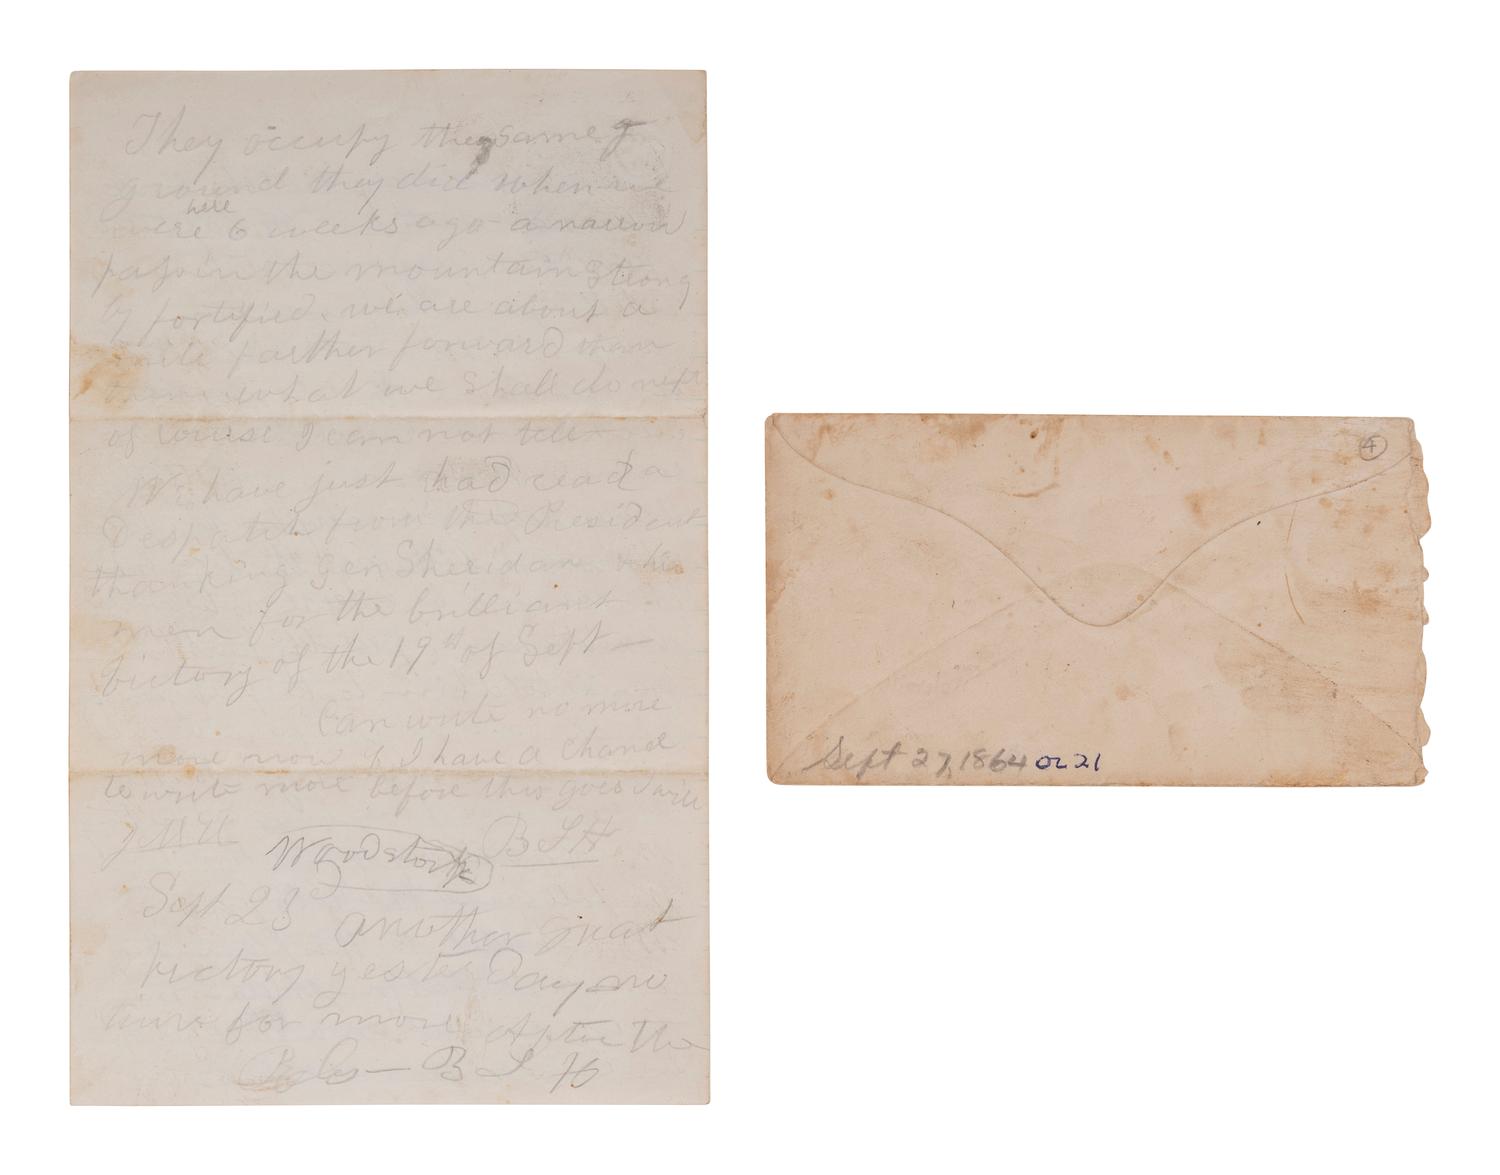 They occupy the same g
ground they did when we
were here 6 weeks ago a narrow
pass in the mountain strong
ly fortified, we are about a
mile farther forward than
then what we shall do next
of course I can not tell—
We have just had read a
Despatch from the President
thanking Gen Sheridan & his
men for the brilliant
victory of the 19th of Sept—
Can write no more
more now if I have a chance
to write more before this goes I will
B S H
Woodstock
Sept 23 another great
victory yesterday no
time for more After the
Rebs — B S H
4
Sept 27, 1864 or 21